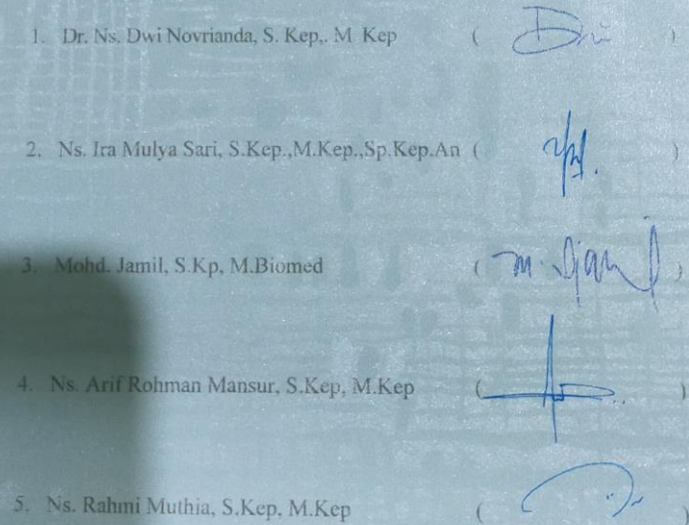 1. Dr. Ns. Dwi Novrianda, S. Kep,. M Kep ( )
2. Ns. Ira Mulya Sari, S.Kep.,M.Kep.,Sp.Kep.An ( )
3. Mohd. Jamil, S.Kp, M.Biomed ( )
4. Ns. Arif Rohman Mansur, S.Kep, M.Kep ( )
5. Ns. Rahmi Muthia, S.Kep, M.Kep ( )